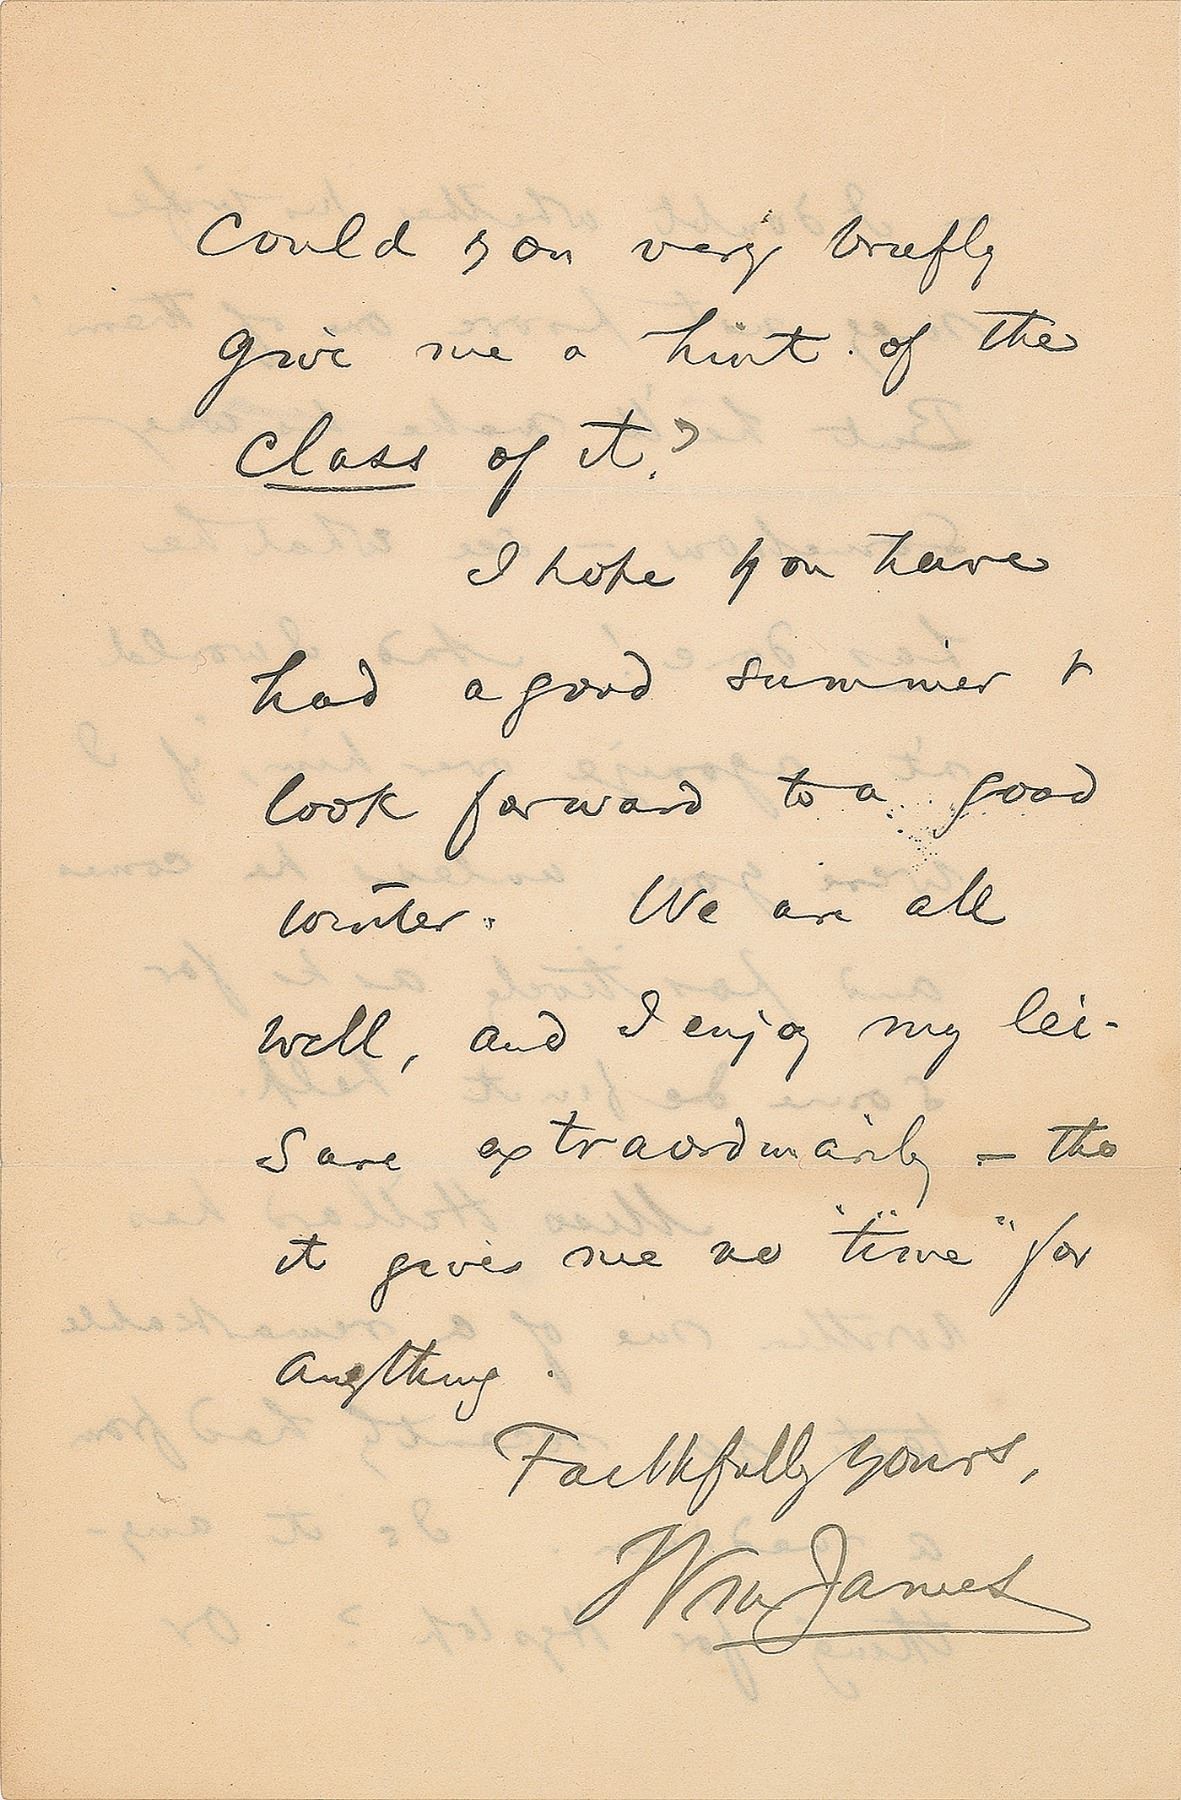 Could you very briefly
give me a hint of the
class of it?
I hope you have
had a good summer &
look forward to a good
winter. We are all
well, and I enjoy my lei-
sure extraordinarily – tho
it gives me no "time" for
anything.
Faithfully yours,
Wm James